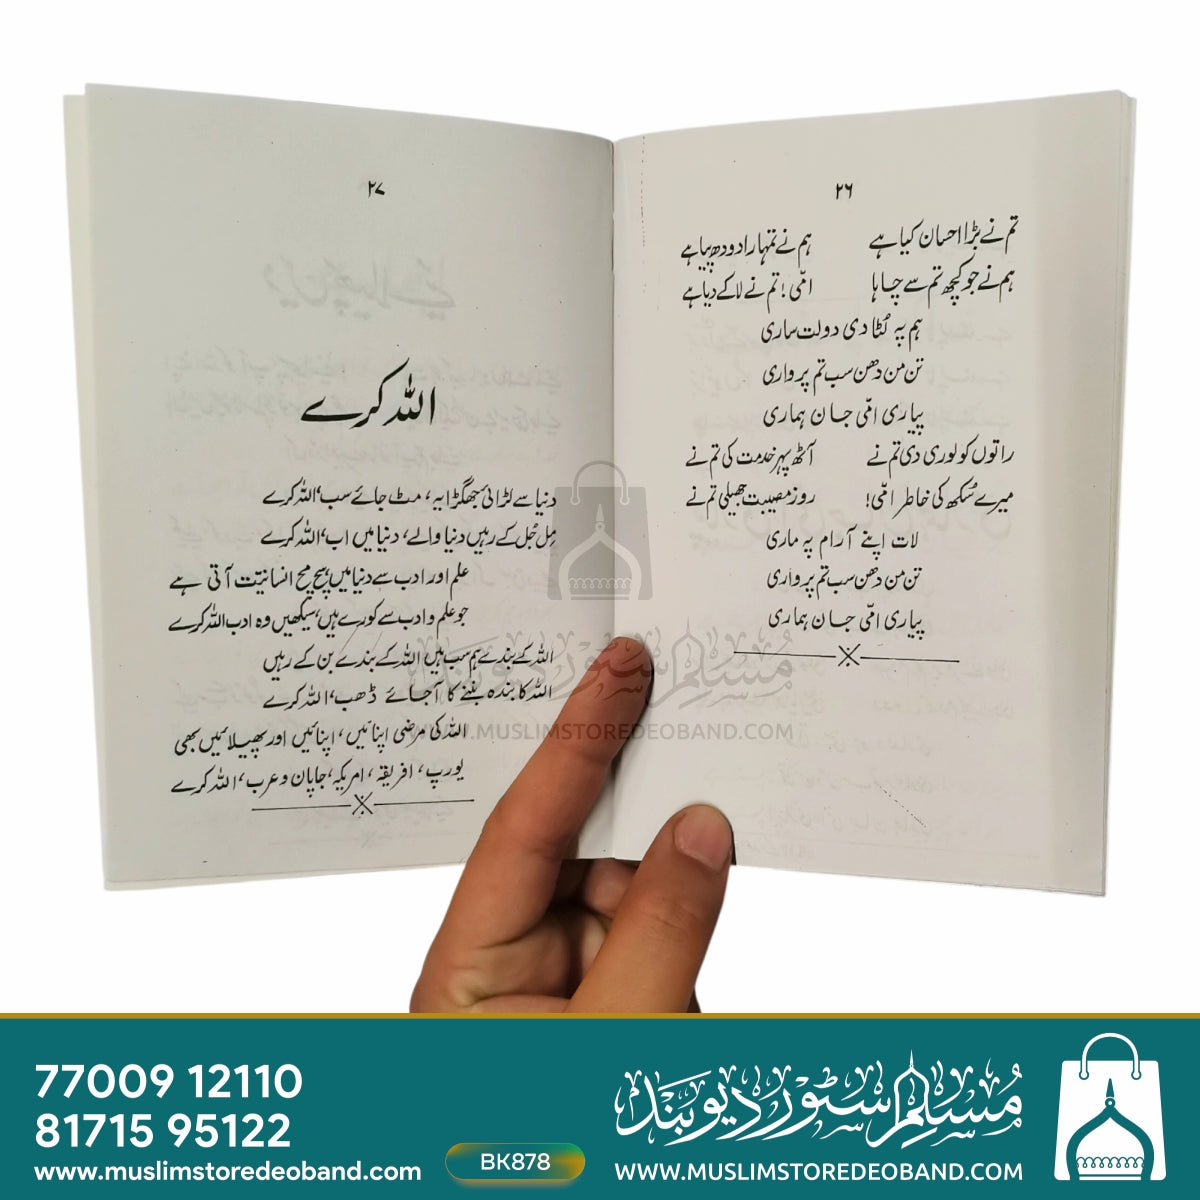 ۲۶
تم نے بڑا احسان کیا ہے ہم نے تمہارا دودھ پیا ہے
ہم نے جو کچھ تم سے چاہا امّی! تم نے لا کے دیا ہے
ہم پہ لُٹا دی دولت ساری
تن من دھن سب تم پر واری
پیاری امّی جان ہماری
راتوں کو لوری دی تم نے آٹھ پہر خدمت کی تم نے
میرے سُکھ کی خاطر امّی! روز مصیبت جھیلی تم نے
لات اپنے آرام پہ ماری
تن من دھن سب تم پر واری
پیاری امّی جان ہماری
۲۷
اللہ کرے
دنیا سے لڑائی جھگڑا یہ، مٹ جائے سب، اللہ کرے
مِل جُل کے رہیں دنیا والے، دنیا میں اب، اللہ کرے
علم اور ادب سے دنیا میں، سچ مچ انسانیّت آتی ہے
جو علم و ادب سے کورے ہیں، سیکھیں وہ ادب اللہ کرے
اللہ کے بندے ہم سب ہیں اللہ کے بندے بن کے رہیں
اللہ کا بندہ بننے کا آ جائے ڈھب، اللہ کرے
اللہ کی مرضی اپنائیں، اپنائیں اور پھیلائیں بھی
یورپ، افریقہ، امریکہ، جاپان و عرب، اللہ کرے
مُسلم سٹور دیوبند
WWW.MUSLIMSTOREDEOBAND.COM
77009 12110
81715 95122
www.muslimstoredeoband.com
BK878
مُسلم سٹور دیوبند
WWW.MUSLIMSTOREDEOBAND.COM